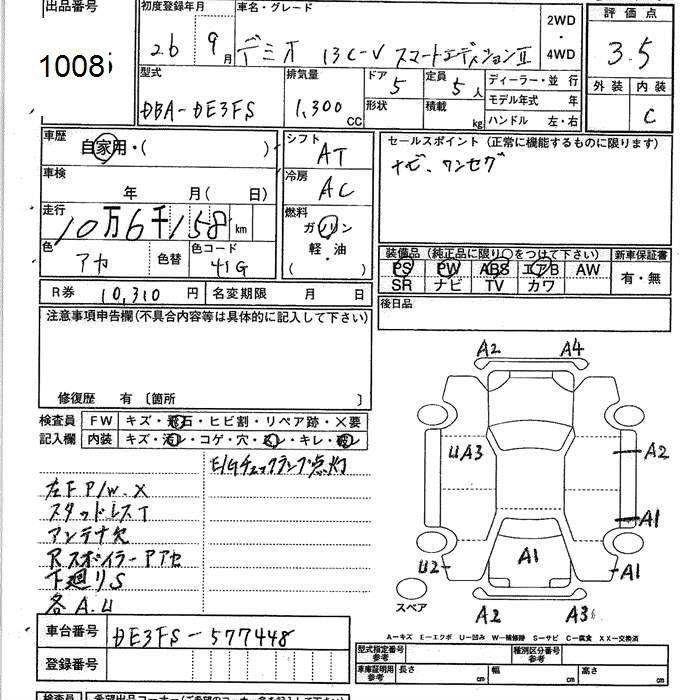 出品番号
1008
初度登録年月
26 9月
車名・グレード
デミオ 13C-V スマートエディションⅡ
2WD
・
4WD
評価点
3.5
外装 内装
C
型式
DBA-DE3FS
排気量
1,300 CC
ドア
5
定員
5人
形状
積載
kg
ディーラー・並行
モデル年式 年
ハンドル 左・右
車歴
自家用・( )
車検
年 月( 日)
走行
10万6千158 km
色
アカ
色替
色コード
41G
シフト
AT
冷房
AC
燃料
ガソリン
軽・油
( )
セールスポイント(正常に機能するものに限ります)
ナビ、ワンセグ
装備品(純正品に限り○をつけて下さい)
新車保証書
PS PW ABS エアB AW
SR ナビ TV カワ
有・無
後日品
R券 10,310円
名変期限 月 日
注意事項申告欄(不具合内容等は具体的に記入して下さい)
修復歴 有 〔箇所 〕
検査員
記入欄
FW キズ・飛石・ヒビ割・リペア跡・×要
内装 キズ・汚レ・コゲ・穴・スレ・キレ・破レ
E/Gチェックランプ点灯
左F P/W.X
スタッドレスT
アンテナ欠
Rスポイラー Pアセ
下廻りS
各A.U
A2 A4
UA3
A2
A1
U2
A1
A1
スペア
A2 A3
A—キズ E—エクボ U—凹み W—補修跡 S—サビ C—腐食 XX—交換済
車台番号
DE3FS-577448
登録番号
型式指定番号
参考
種別区分番号
参考
車庫証明用
参考
長さ cm
幅 cm
高さ cm
検査員
希望出品コーナー(ご希望のコーナー名を記入して下さい)